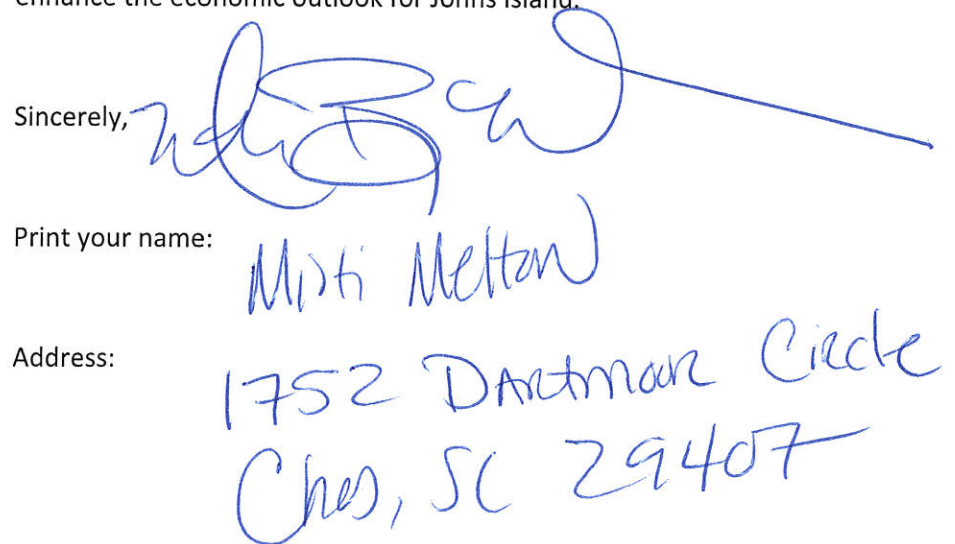 enhance the economic outlook for Johns Island.
Sincerely,
Print your name: Misti Melton
Address: 1752 Dartmoor Circle
Chas, SC 29407